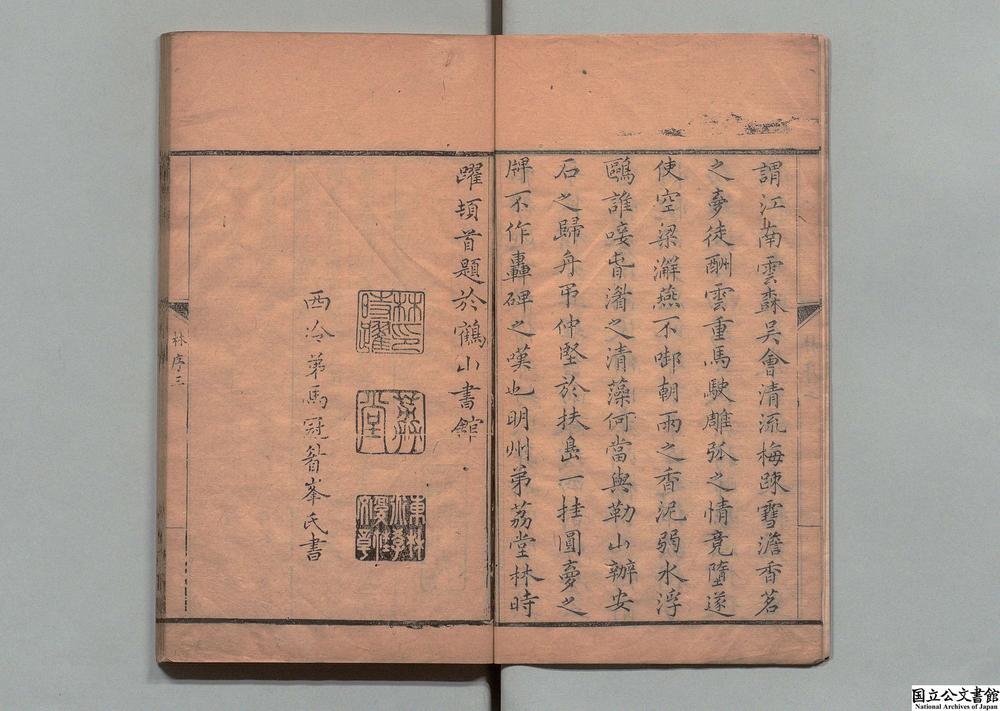 謂江南雲森吳會清流梅踈雪澹香茗
之夢徒酬雲重馬駛雕弧之情竟墮遂
使空梁澥燕不啣朝雨之香泥弱水浮
鷗誰唼香潽之清藻何當與勒山辦安
石之歸舟弔仲堅於扶島一挂圓夢之
牌不作轟碑之嘆也明州弟荔堂林時
躍頓首題於鶴山書館
林印時躍
荔堂
西泠弟馬冠眷峯氏書
林序三
国立公文書館
National Archives of Japan